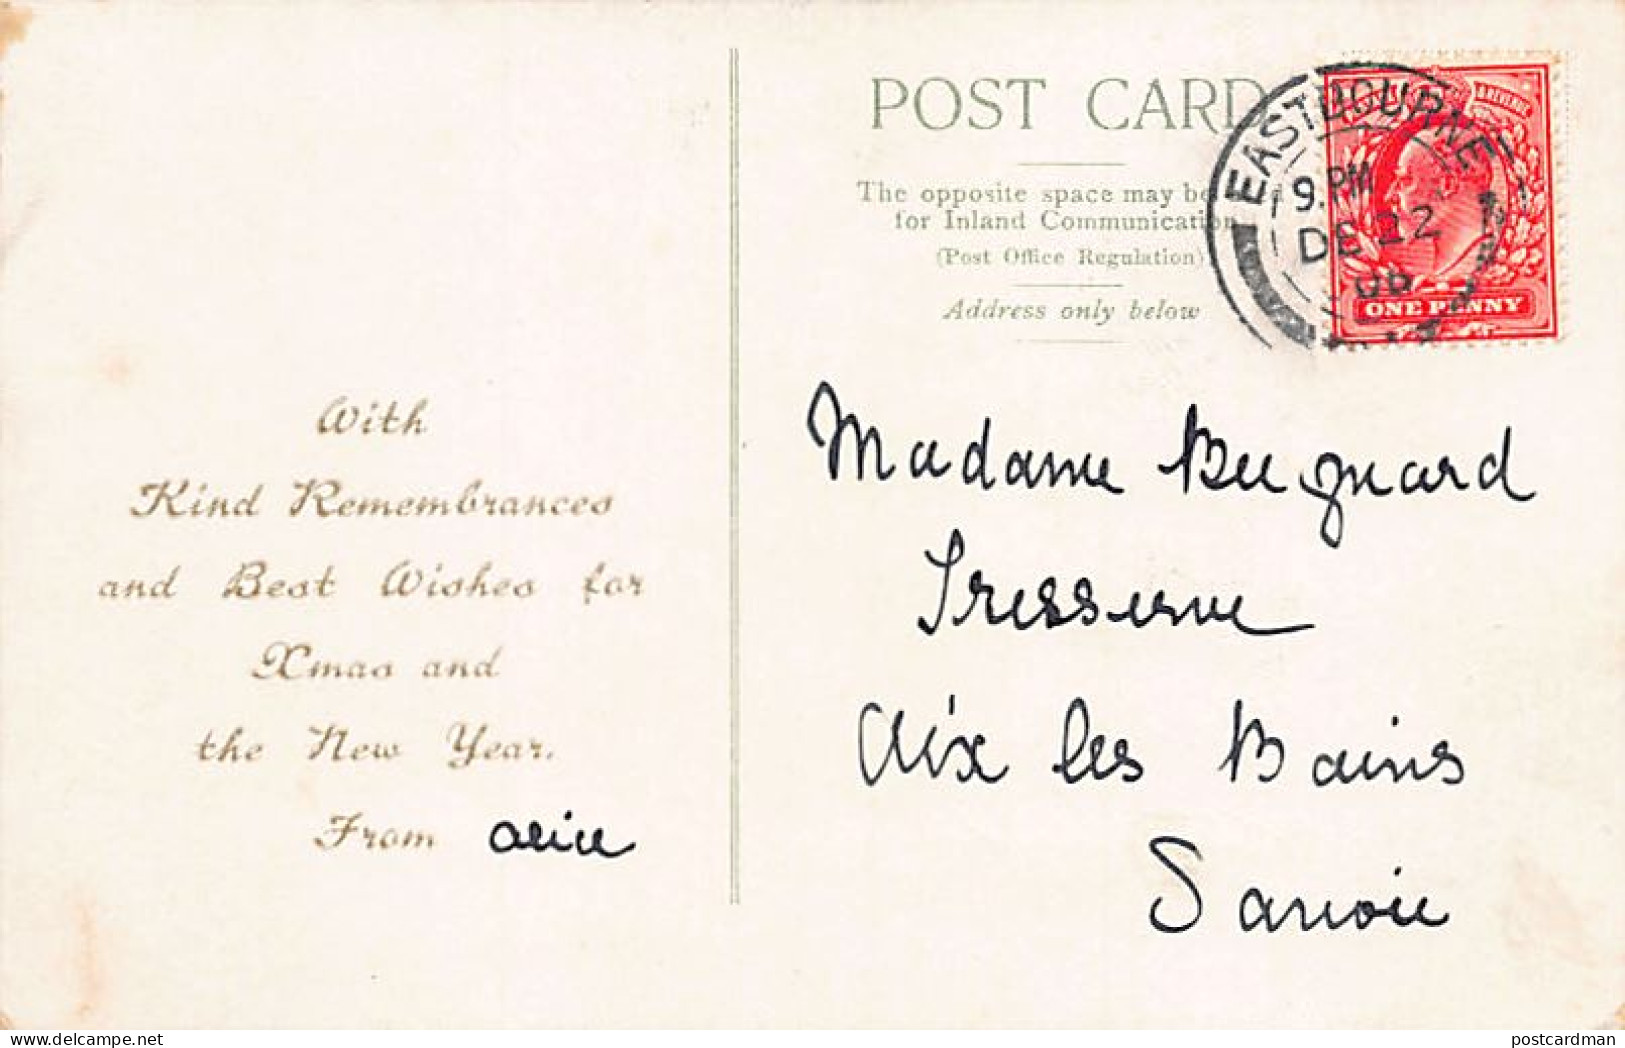 POST CARD
The opposite space may be
for Inland Communication
(Post Office Regulation)
Address only below
EASTBOURNE
9. PM
DE 22
06
& REVENUE
ONE PENNY
With
Kind Remembrances
and Best Wishes for
Xmas and
the New Year.
From alice
Madame Bugnard
Tresserve
Aix les Bains
Savoie
postcardman